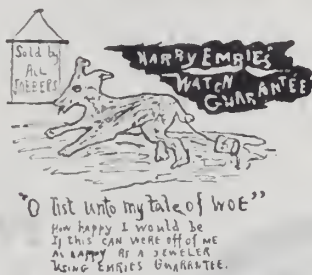 Sold by
ALL
JOBBERS
HARRY EMRIE'S
WATCH
GUARANTEE
"O list unto my tale of WOE"
How happy I would be
If this CAN WERE off of ME
AS HAPPY AS A JEWELER
USING EMRIES GUARANTEE.